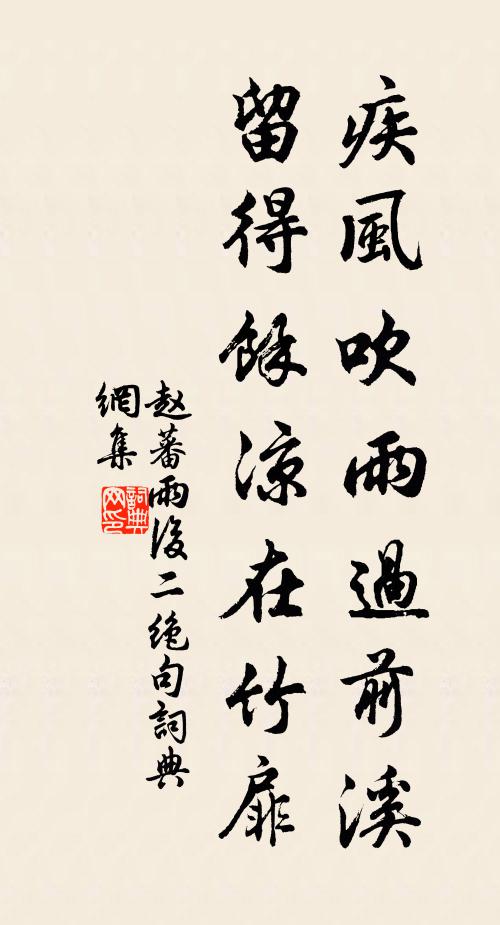 疾風吹雨過前溪
留得餘涼在竹扉
赵蕃雨後二絶句詞典
網集
詞典
网印